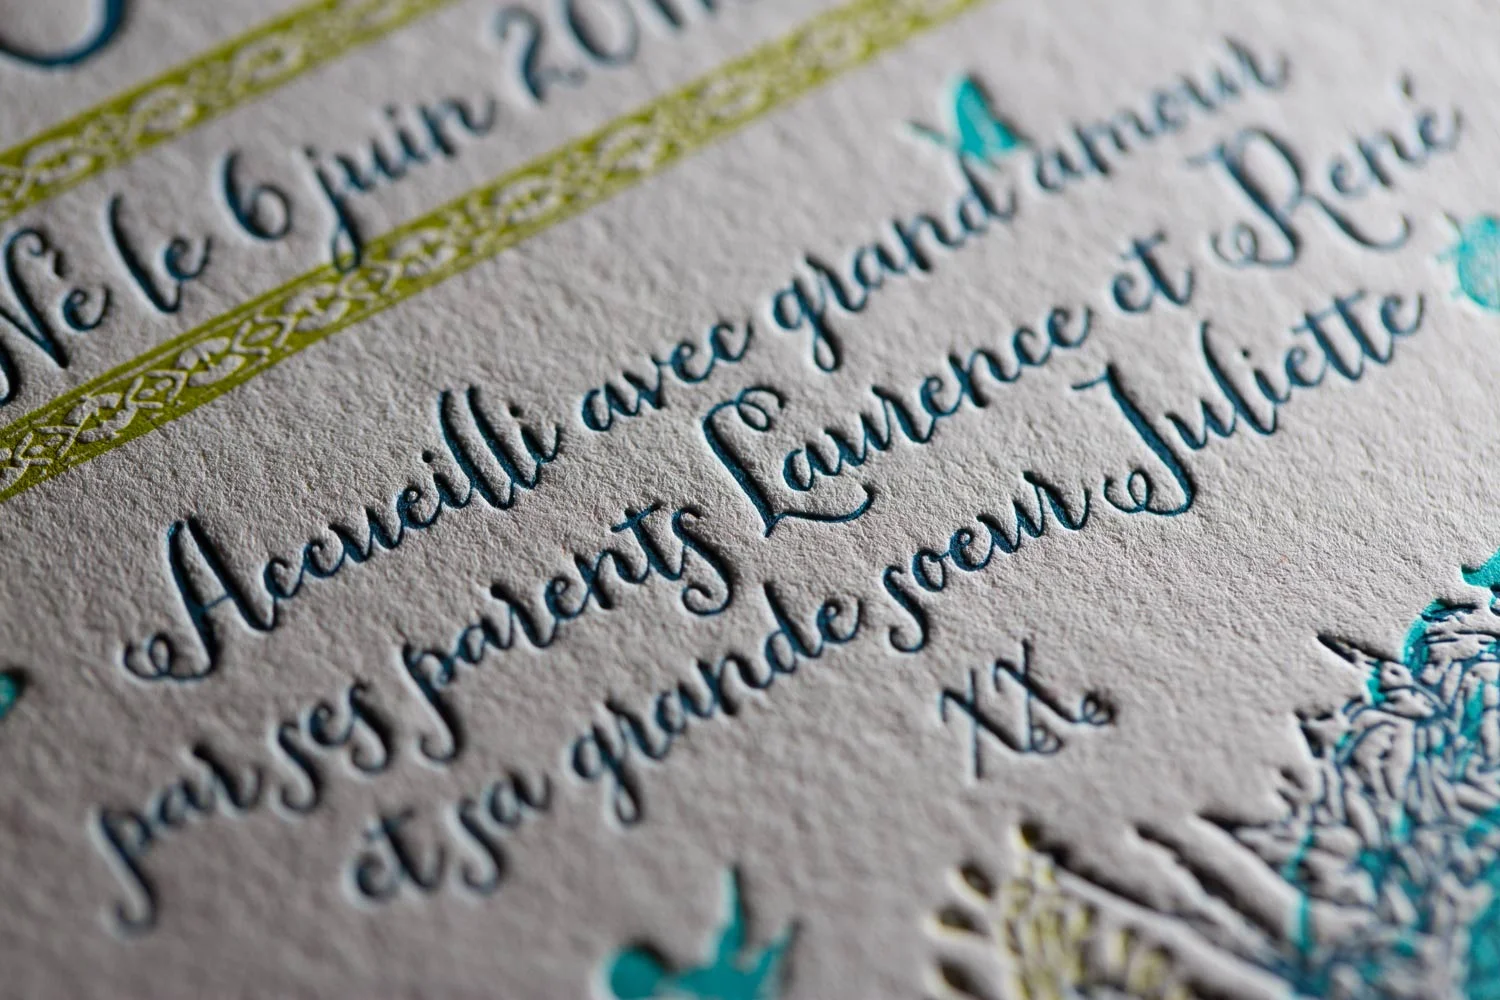 Né le 6 juin
Accueilli avec grand amour
par ses parents Laurence et René
et sa grande soeur Juliette
XX